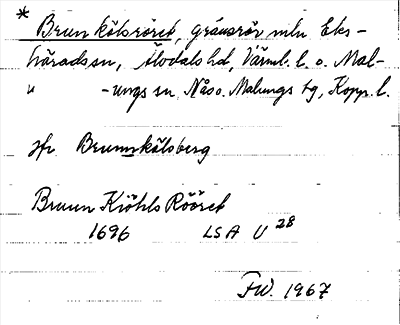 * Brunkölsröret, gränsrör mln Eks-
häradssn, Älvdals hd, Värml. l. o. Mal-
u -ungs sn Nås o. Malungs tg, Kopp. l.
jfr Brunnkölsberg
Bruun Kiöhls Rööret
1696 LSA U 28
FW. 1967